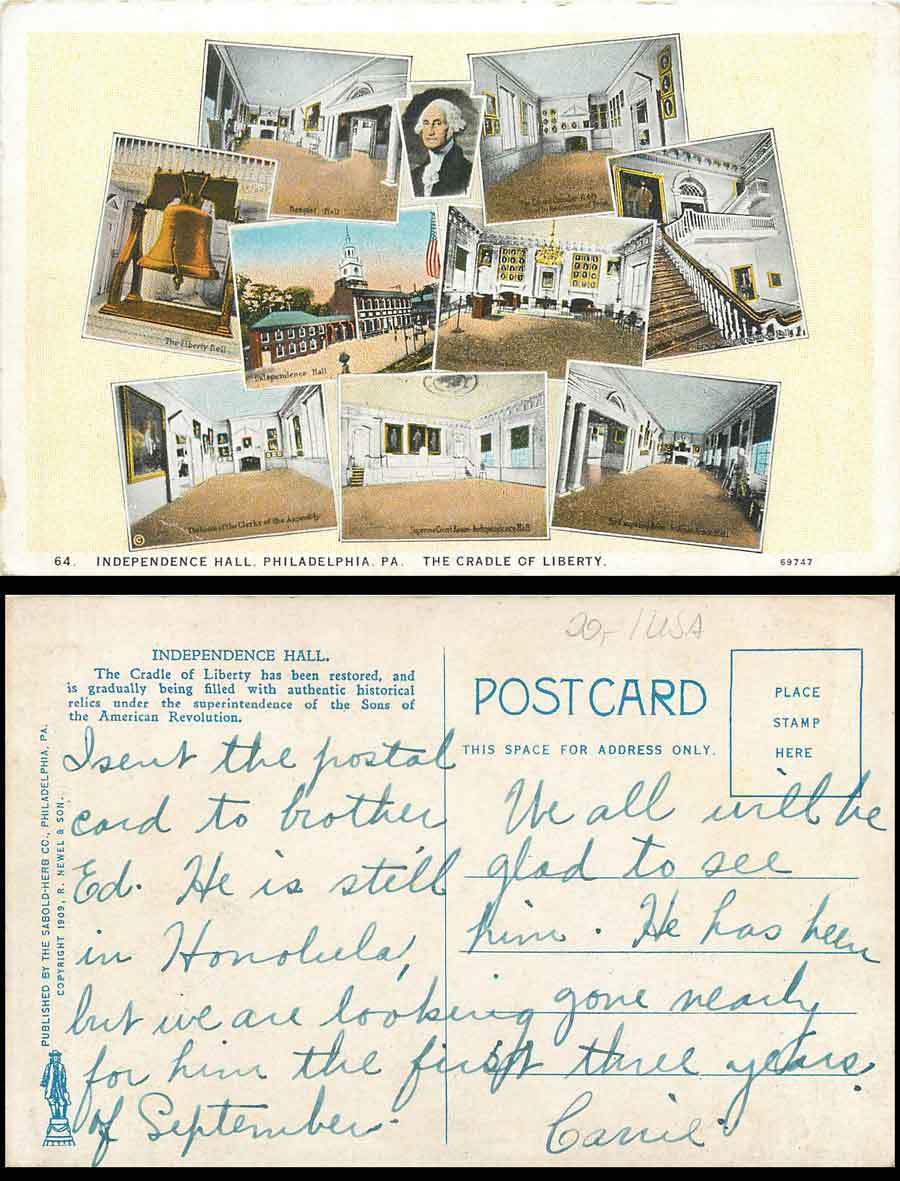 Banquet Hall
The Liberty Bell
Independence Hall
The Rooms of the Clerks of the Assembly
Supreme Court Room - Independence Hall
©
64. INDEPENDENCE HALL, PHILADELPHIA, PA. THE CRADLE OF LIBERTY.
69747
20,- / USA
INDEPENDENCE HALL.
The Cradle of Liberty has been restored, and
is gradually being filled with authentic historical
relics under the superintendence of the Sons of
the American Revolution.
PUBLISHED BY THE SABOLD-HERB CO., PHILADELPHIA, PA.
COPYRIGHT 1909, R. NEWEL & SON.
I sent the postal
card to brother
Ed. He is still
in Honolula,
but we are looking
for him the first
of September.
POSTCARD
THIS SPACE FOR ADDRESS ONLY.
PLACE
STAMP
HERE
We all will be
glad to see
him. He has been
gone nearly
three years.
Carrie.